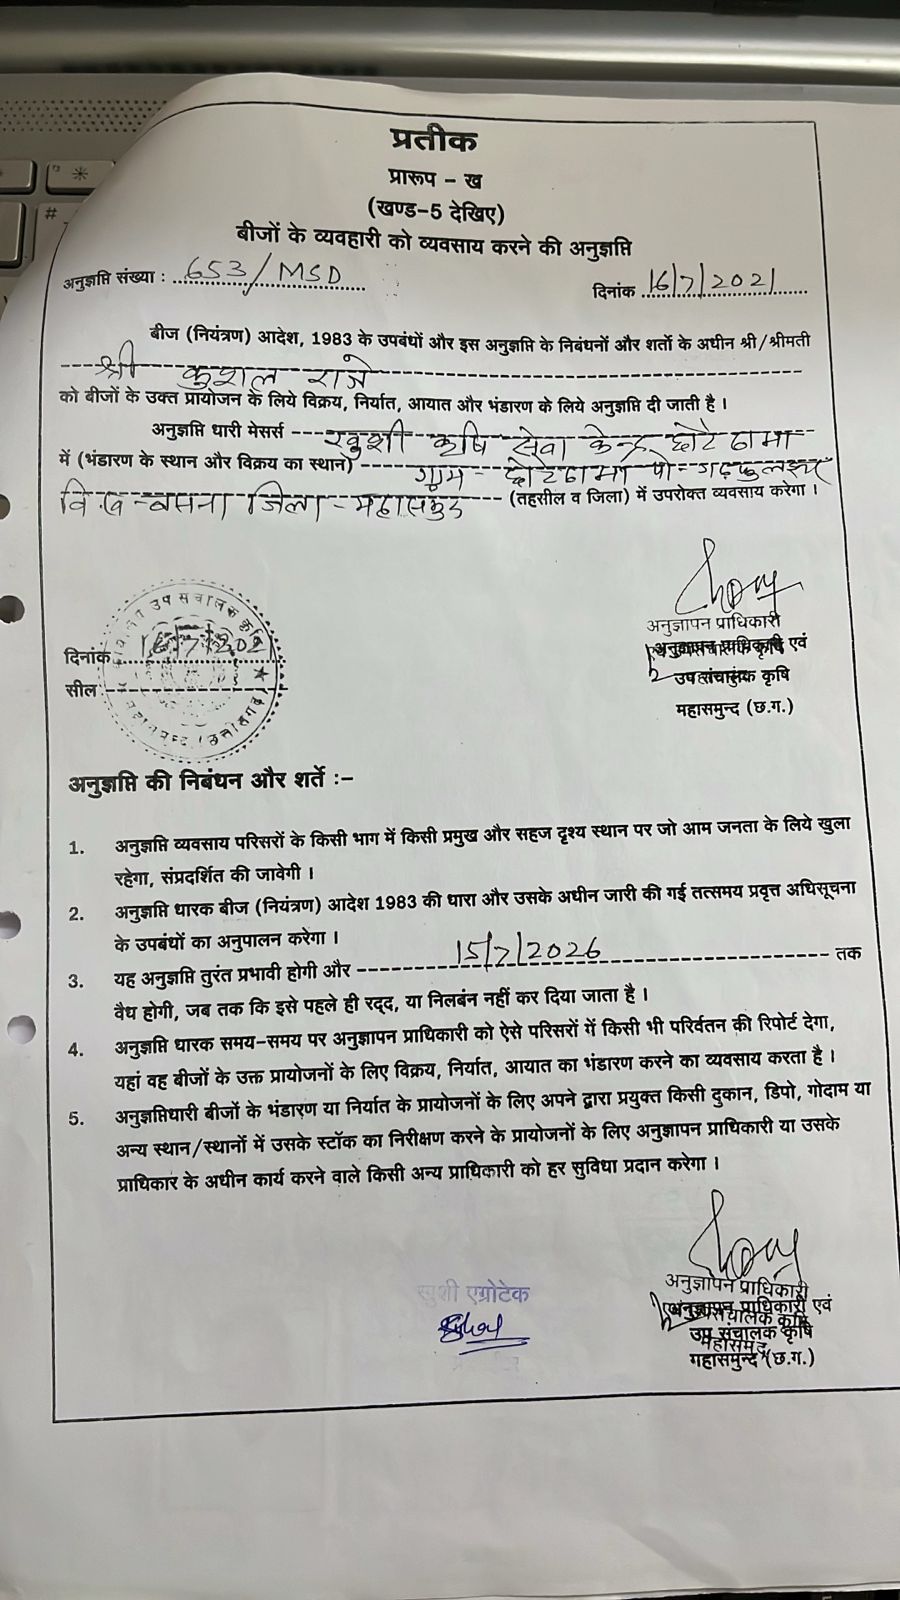 प्रतीक
प्रारूप - ख
(खण्ड-5 देखिए)
बीजों के व्यवहारी को व्यवसाय करने की अनुज्ञप्ति
अनुज्ञप्ति संख्या : 653/MSD
दिनांक 16/7/2021
बीज (नियंत्रण) आदेश, 1983 के उपबंधों और इस अनुज्ञप्ति के निबंधनों और शर्तो के अधीन श्री/श्रीमती
श्री कुशल राजे
को बीजों के उक्त प्रायोजन के लिये विक्रय, निर्यात, आयात और भंडारण के लिये अनुज्ञप्ति दी जाती है ।
अनुज्ञप्ति धारी मेसर्स खुशी कृषि सेवा केन्द्र छोटे ढाभा
में (भंडारण के स्थान और विक्रय का स्थान) ग्राम - छोटे ढाभा पो-
वि.ख-बसना जिला-महासमुंद (तहसील व जिला) में उपरोक्त व्यवसाय करेगा ।
अनुज्ञापन प्राधिकारी
अनुज्ञापन प्राधिकारी एवं
दिनांक 16/7/202
उप संचालक कृषि
सील :
महासमुन्द (छ.ग.)
उप संचालक कृषि
महासमुन्द (छत्तीसगढ़)
अनुज्ञप्ति की निबंधन और शर्ते :-
1. अनुज्ञप्ति व्यवसाय परिसरों के किसी भाग में किसी प्रमुख और सहज दृश्य स्थान पर जो आम जनता के लिये खुला
रहेगा, संप्रदर्शित की जावेगी ।
2. अनुज्ञप्ति धारक बीज (नियंत्रण) आदेश 1983 की धारा और उसके अधीन जारी की गई तत्समय प्रवृत्त अधिसूचना
के उपबंधों का अनुपालन करेगा ।
3. यह अनुज्ञप्ति तुरंत प्रभावी होगी और 15/7/2026 तक
वैध होगी, जब तक कि इसे पहले ही रद्द, या निलबंन नहीं कर दिया जाता है ।
4. अनुज्ञप्ति धारक समय-समय पर अनुज्ञापन प्राधिकारी को ऐसे परिसरों में किसी भी परिर्वतन की रिपोर्ट देगा,
यहां वह बीजों के उक्त प्रायोजनों के लिए विक्रय, निर्यात, आयात का भंडारण करने का व्यवसाय करता है ।
5. अनुज्ञप्तिधारी बीजों के भंडारण या निर्यात के प्रायोजनों के लिए अपने द्वारा प्रयुक्त किसी दुकान, डिपो, गोदाम या
अन्य स्थान/स्थानों में उसके स्टॉक का निरीक्षण करने के प्रायोजनों के लिए अनुज्ञापन प्राधिकारी या उसके
प्राधिकार के अधीन कार्य करने वाले किसी अन्य प्राधिकारी को हर सुविधा प्रदान करेगा ।
खुशी एग्रोटेक
अनुज्ञापन प्राधिकारी
अनुज्ञापन प्राधिकारी एवं
उप संचालक कृषि
महासमुन्द (छ.ग.)